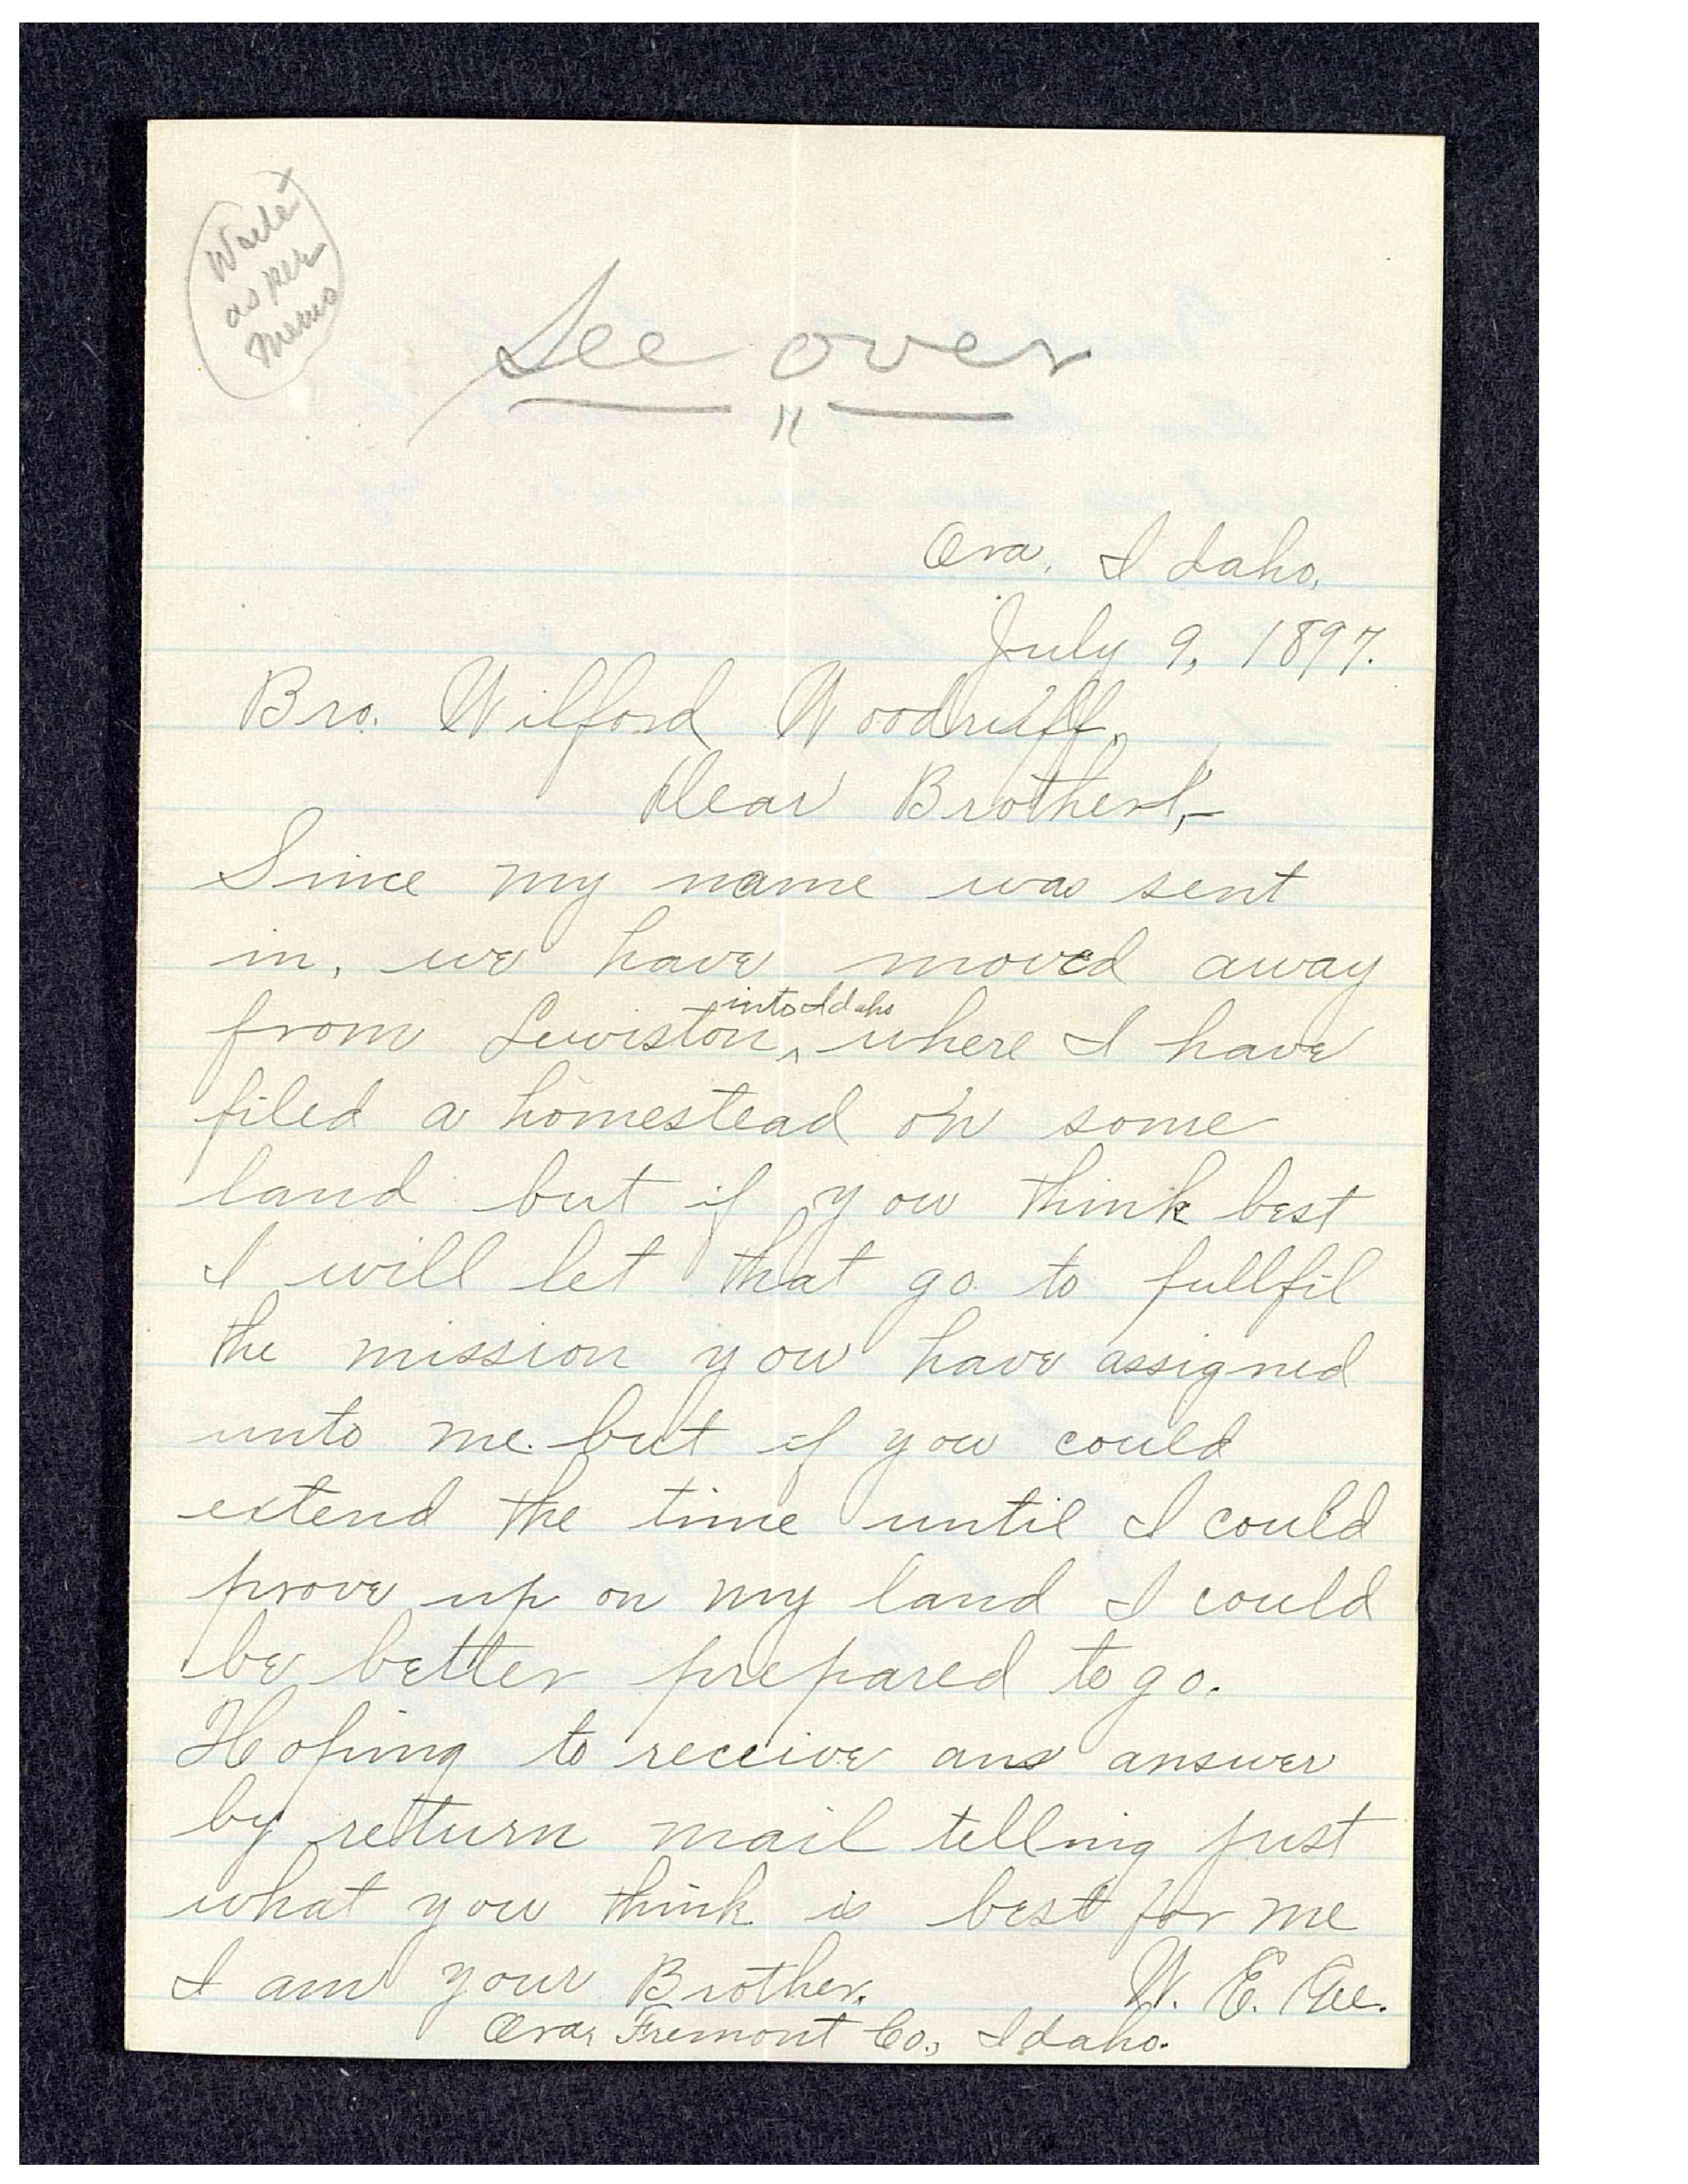 Wrote
as per
memo
See over
"
Ora, Idaho,
July 9, 1897.
Bro. Wilford Woodruff,
Dear Brother,-
Since my name was sent
in, we have moved away
from Lewiston, ^into Idaho where I have
filed a homestead on some
land but if you think best
I will let that go to fullfil
the mission you have assigned
unto me. but if you could
extend the time until I could
prove up on my land I could
be better prepared to go.
Hoping to receive ans answer
by return mail telling just
what you think is best for me
I am your Brother. W. E.
Ora, Fremont Co., Idaho.